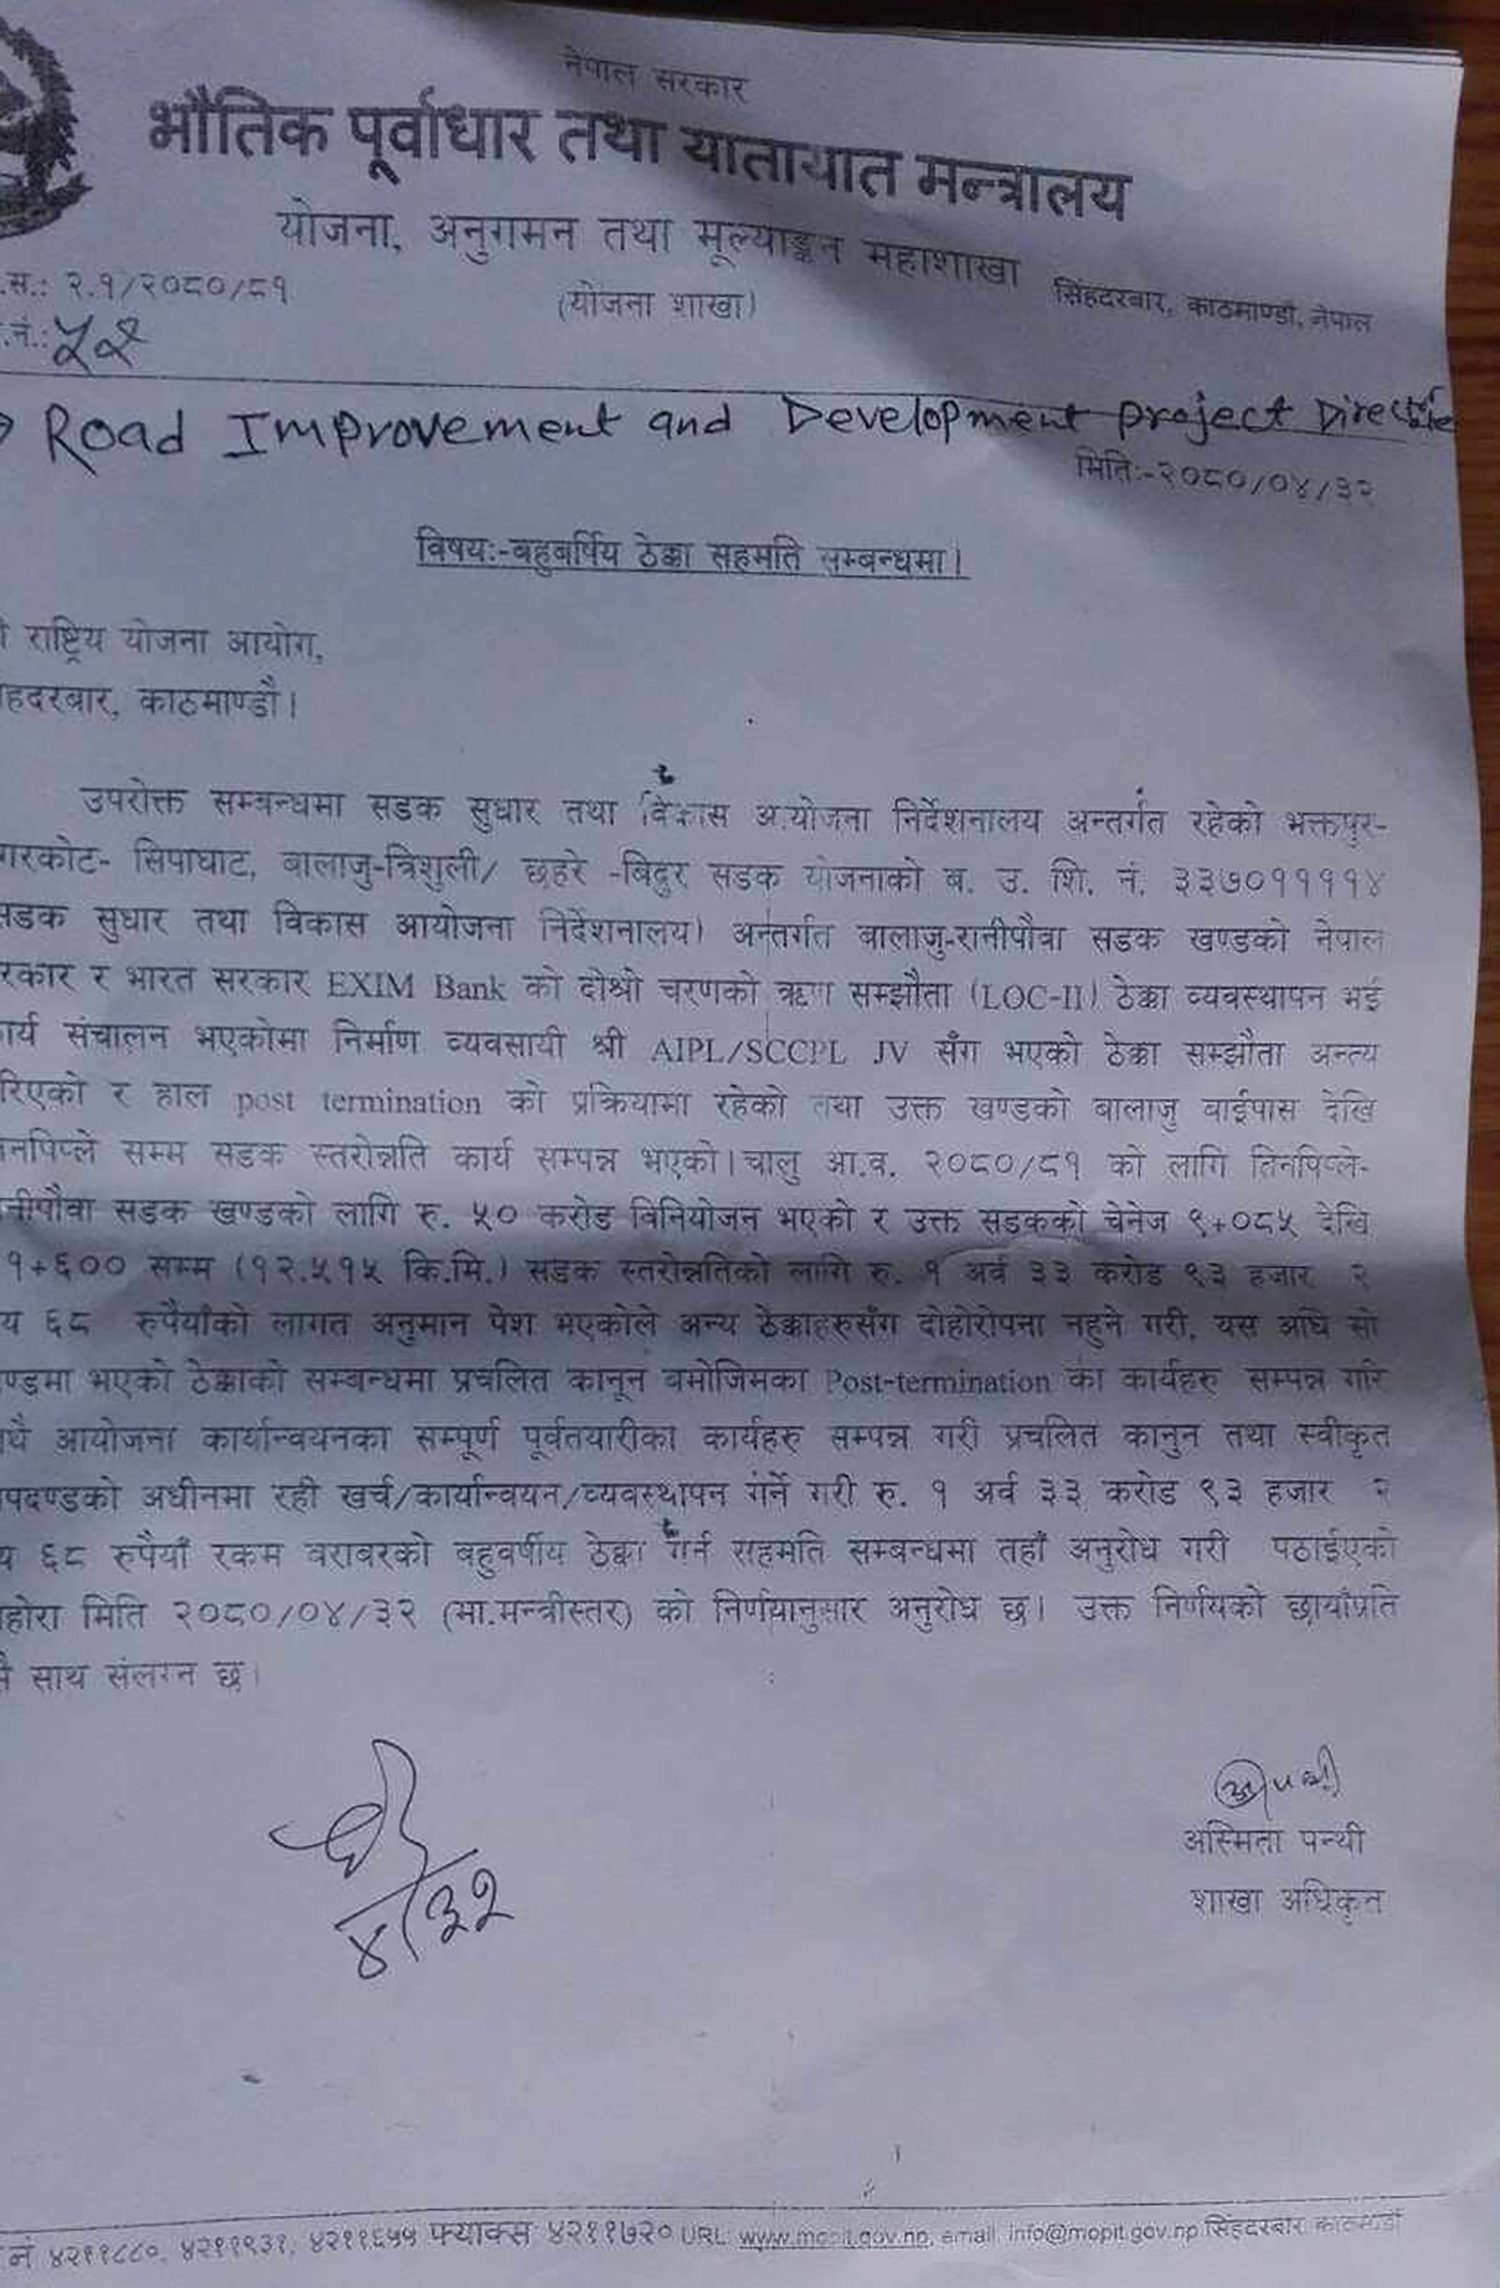 नेपाल सरकार
भौतिक पूर्वाधार तथा यातायात मन्त्रालय
योजना, अनुगमन तथा मूल्याङ्कन महाशाखा
.स.: २.१/२०८०/८१ (योजना शाखा) सिंहदरबार, काठमाण्डौ, नेपाल
.नं.: ५२
Road Improvement and Development Project
मिति:-२०८०/०४/३२
विषय:-बहुबर्षिय ठेक्का सहमति सम्बन्धमा।
राष्ट्रिय योजना आयोग,
हदरबार, काठमाण्डौ।
उपरोक्त सम्बन्धमा सडक सुधार तथा विकास आयोजना निर्देशनालय अन्तर्गत रहेको भक्तपुर-
गरकोट- सिपाघाट, बालाजु-त्रिशुली/ छहरे -बिदुर सडक योजनाको ब. उ. शि. नं. ३३७०११११४
सडक सुधार तथा विकास आयोजना निर्देशनालय) अन्तर्गत बालाजु-रानीपौवा सडक खण्डको नेपाल
रकार र भारत सरकार EXIM Bank को दोश्रो चरणको ऋण सम्झौता (LOC-II) ठेक्का व्यवस्थापन भई
ार्य संचालन भएकोमा निर्माण व्यवसायी श्री AIPL/SCCPL JV सँग भएको ठेक्का सम्झौता अन्त्य
रिएको र हाल post termination को प्रक्रियामा रहेको तथा उक्त खण्डको बालाजु बाईपास देखि
िनपिप्ले सम्म सडक स्तरोन्नति कार्य सम्पन्न भएको। चालु आ.व. २०८०/८१ को लागि तिनपिप्ले-
नीपौवा सडक खण्डको लागि रु. ५० करोड विनियोजन भएको र उक्त सडकको चेनेज ९+०८५ देखि
१+६०० सम्म (१२.५१५ कि.मि.) सडक स्तरोन्नतिको लागि रु. १ अर्व ३३ करोड ९३ हजार २
य ६८ रुपैयाँको लागत अनुमान पेश भएकोले अन्य ठेक्काहरुसँग दोहोरोपना नहुने गरी, यस अघि सो
ण्डमा भएको ठेक्काको सम्बन्धमा प्रचलित कानून बमोजिमका Post-termination का कार्यहरु सम्पन्न गरि
थै आयोजना कार्यान्वयनका सम्पूर्ण पूर्वतयारीका कार्यहरु सम्पन्न गरी प्रचलित कानुन तथा स्वीकृत
पदण्डको अधीनमा रही खर्च/कार्यान्वयन/व्यवस्थापन गर्ने गरी रु. १ अर्व ३३ करोड ९३ हजार २
य ६८ रुपैयाँ रकम बराबरको बहुवर्षीय ठेक्का गर्न सहमति सम्बन्धमा तहाँ अनुरोध गरी पठाईएको
होरा मिति २०८०/०४/३२ (मा.मन्त्रीस्तर) को निर्णयानुसार अनुरोध छ। उक्त निर्णयको छायाँप्रति
सै साथ संलग्न छ।
४/३२
अस्मिता पन्थी
शाखा अधिकृत
नं ४२११८८०, ४२११९३१, ४२११६५५ फ्याक्स ४२११७२० URL: www.mopit.gov.np, email. info@mopit.gov.np सिंहदरबार, काठमाडौं